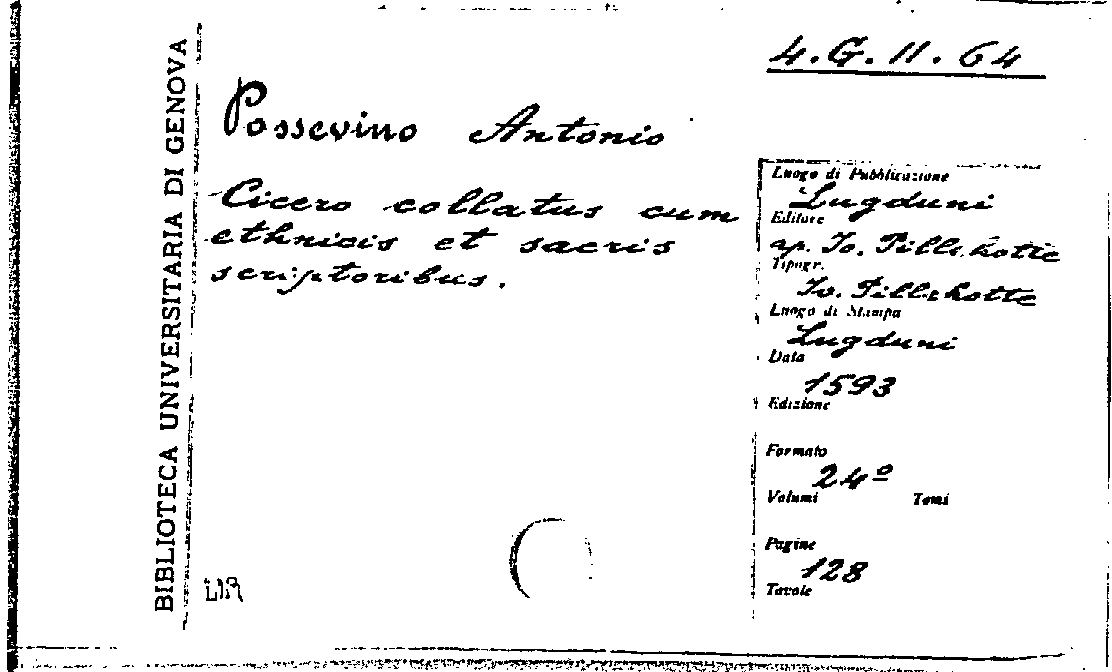 4.G.11.64
BIBLIOTECA UNIVERSITARIA DI GENOVA
Possevino Antonio
Cicero collatus cum
ethnicis et sacris
scriptoribus.
Luogo di Pubblicazione
Lugduni
Editore
ap. Io. Pillehotte
Tipogr.
Io. Pillehotte
Luogo di Stampa
Lugduni
Data
1593
Edizione
Formato
24º
Volumi Tomi
Pagine
128
Tavole